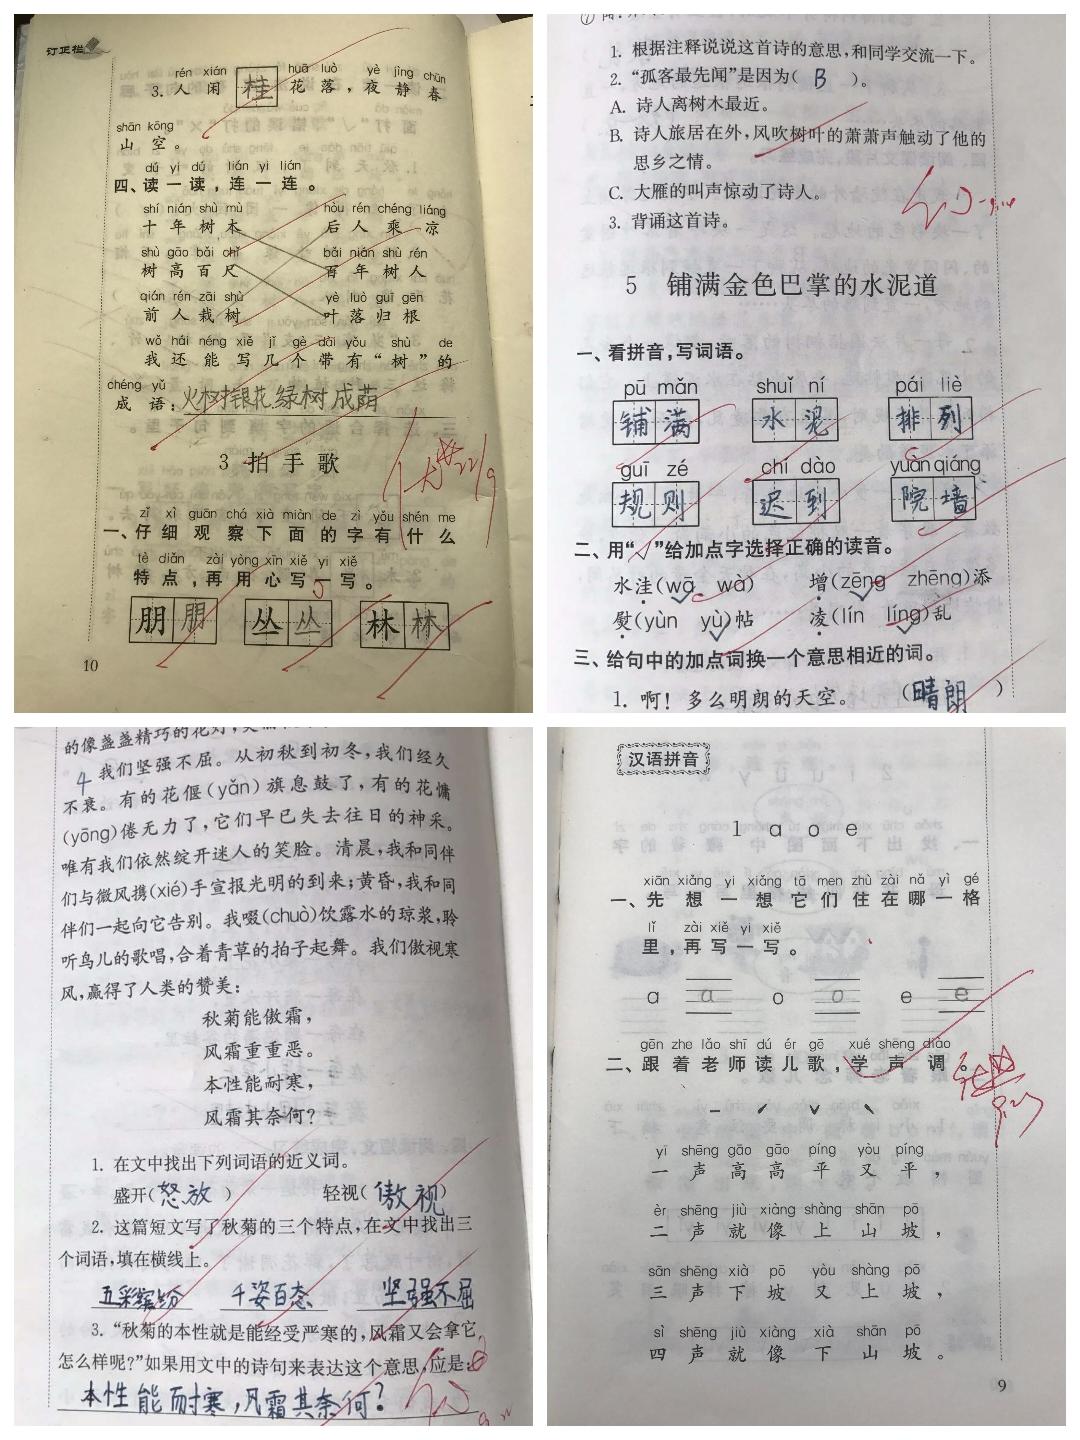 订正栏
rén xián huā luò yè jìng chūn
3. 人闲桂花落，夜静春
shān kōng
山空。
dú yi dú lián yi lián
四、读一读，连一连。
shí nián shù mù hòu rén chéng liáng
十年树木 后人乘凉
shù gāo bǎi chǐ bǎi nián shù rén
树高百尺 百年树人
qián rén zāi shù yè luò guī gēn
前人栽树 叶落归根
wǒ hái néng xiě jǐ gè dài yǒu shù de
我还能写几个带有“树”的
chéng yǔ
成语：火树银花 绿树成荫
3 拍手歌
zǐ xì guān chá xià miàn de zì yǒu shén me
一、仔细观察下面的字有什么
tè diǎn zài yòng xīn xiě yi xiě
特点，再用心写一写。
朋朋 丛丛 林林
10
1. 根据注释说说这首诗的意思，和同学交流一下。
2. “孤客最先闻”是因为（ B ）。
A. 诗人离树木最近。
B. 诗人旅居在外，风吹树叶的萧萧声触动了他的
思乡之情。
C. 大雁的叫声惊动了诗人。
3. 背诵这首诗。
5 铺满金色巴掌的水泥道
一、看拼音，写词语。
pū mǎn shuǐ ní pái liè
铺满 水泥 排列
guī zé chí dào yuàn qiáng
规则 迟到 院墙
二、用“√”给加点字选择正确的读音。
水洼(wā wà) 增(zēng zhēng)添
熨(yùn yù)帖 凌(lín líng)乱
三、给句中的加点词换一个意思相近的词。
1. 啊！多么明朗的天空。 （晴朗）
4 我们坚强不屈。从初秋到初冬，我们经久
不衰。有的花偃(yǎn)旗息鼓了，有的花慵
(yōng)倦无力了，它们早已失去往日的神采。
唯有我们依然绽开迷人的笑脸。清晨，我和同伴
们与微风携(xié)手宣报光明的到来；黄昏，我和同
伴们一起向它告别。我啜(chuò)饮露水的琼浆，聆
听鸟儿的歌唱，合着青草的拍子起舞。我们傲视寒
风，赢得了人类的赞美：
秋菊能傲霜，
风霜重重恶。
本性能耐寒，
风霜其奈何？
1. 在文中找出下列词语的近义词。
盛开（怒放） 轻视（傲视）
2. 这篇短文写了秋菊的三个特点，在文中找出三
个词语，填在横线上。
五彩缤纷 千姿百态 坚强不屈
3. “秋菊的本性就是能经受严寒的，风霜又会拿它
怎么样呢？”如果用文中的诗句来表达这个意思，应是：
本性能耐寒，风霜其奈何？
汉语拼音
1 a o e
xiān xiǎng yi xiǎng tā men zhù zài nǎ yì gé
一、先想一想它们住在哪一格
lǐ zài xiě yi xiě
里，再写一写。
a a o o e e
gēn zhe lǎo shī dú ér gē xué shēng diào
二、跟着老师读儿歌，学声调。
yī shēng gāo gāo píng yòu píng
一声高高平又平，
èr shēng jiù xiàng shàng shān pō
二声就像上山坡，
sān shēng xià pō yòu shàng pō
三声下坡又上坡，
sì shēng jiù xiàng xià shān pō
四声就像下山坡。
9